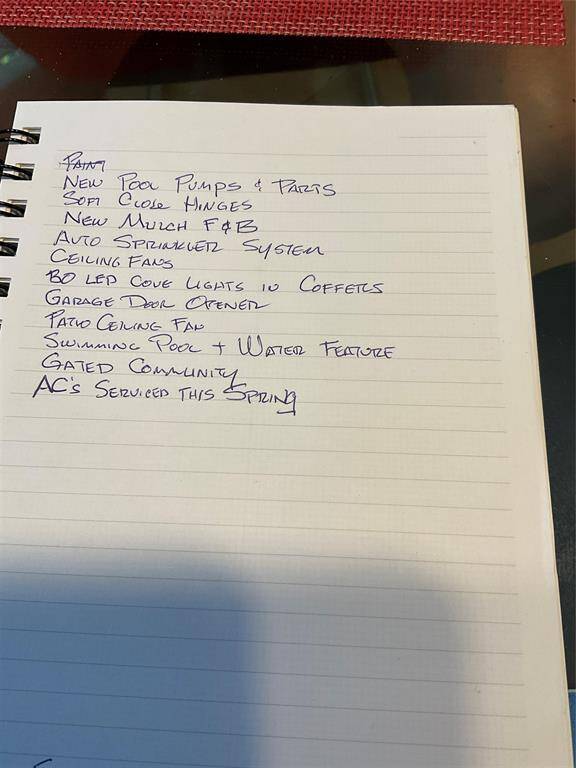 PAINT
NEW POOL PUMPS & PARTS
SOFT CLOSE HINGES
NEW MULCH F & B
AUTO SPRINKLER SYSTEM
CEILING FANS
LED COVE LIGHTS IN COFFERS
GARAGE DOOR OPENER
PATIO CEILING FAN
SWIMMING POOL + WATER FEATURE
GATED COMMUNITY
AC'S SERVICED THIS SPRING